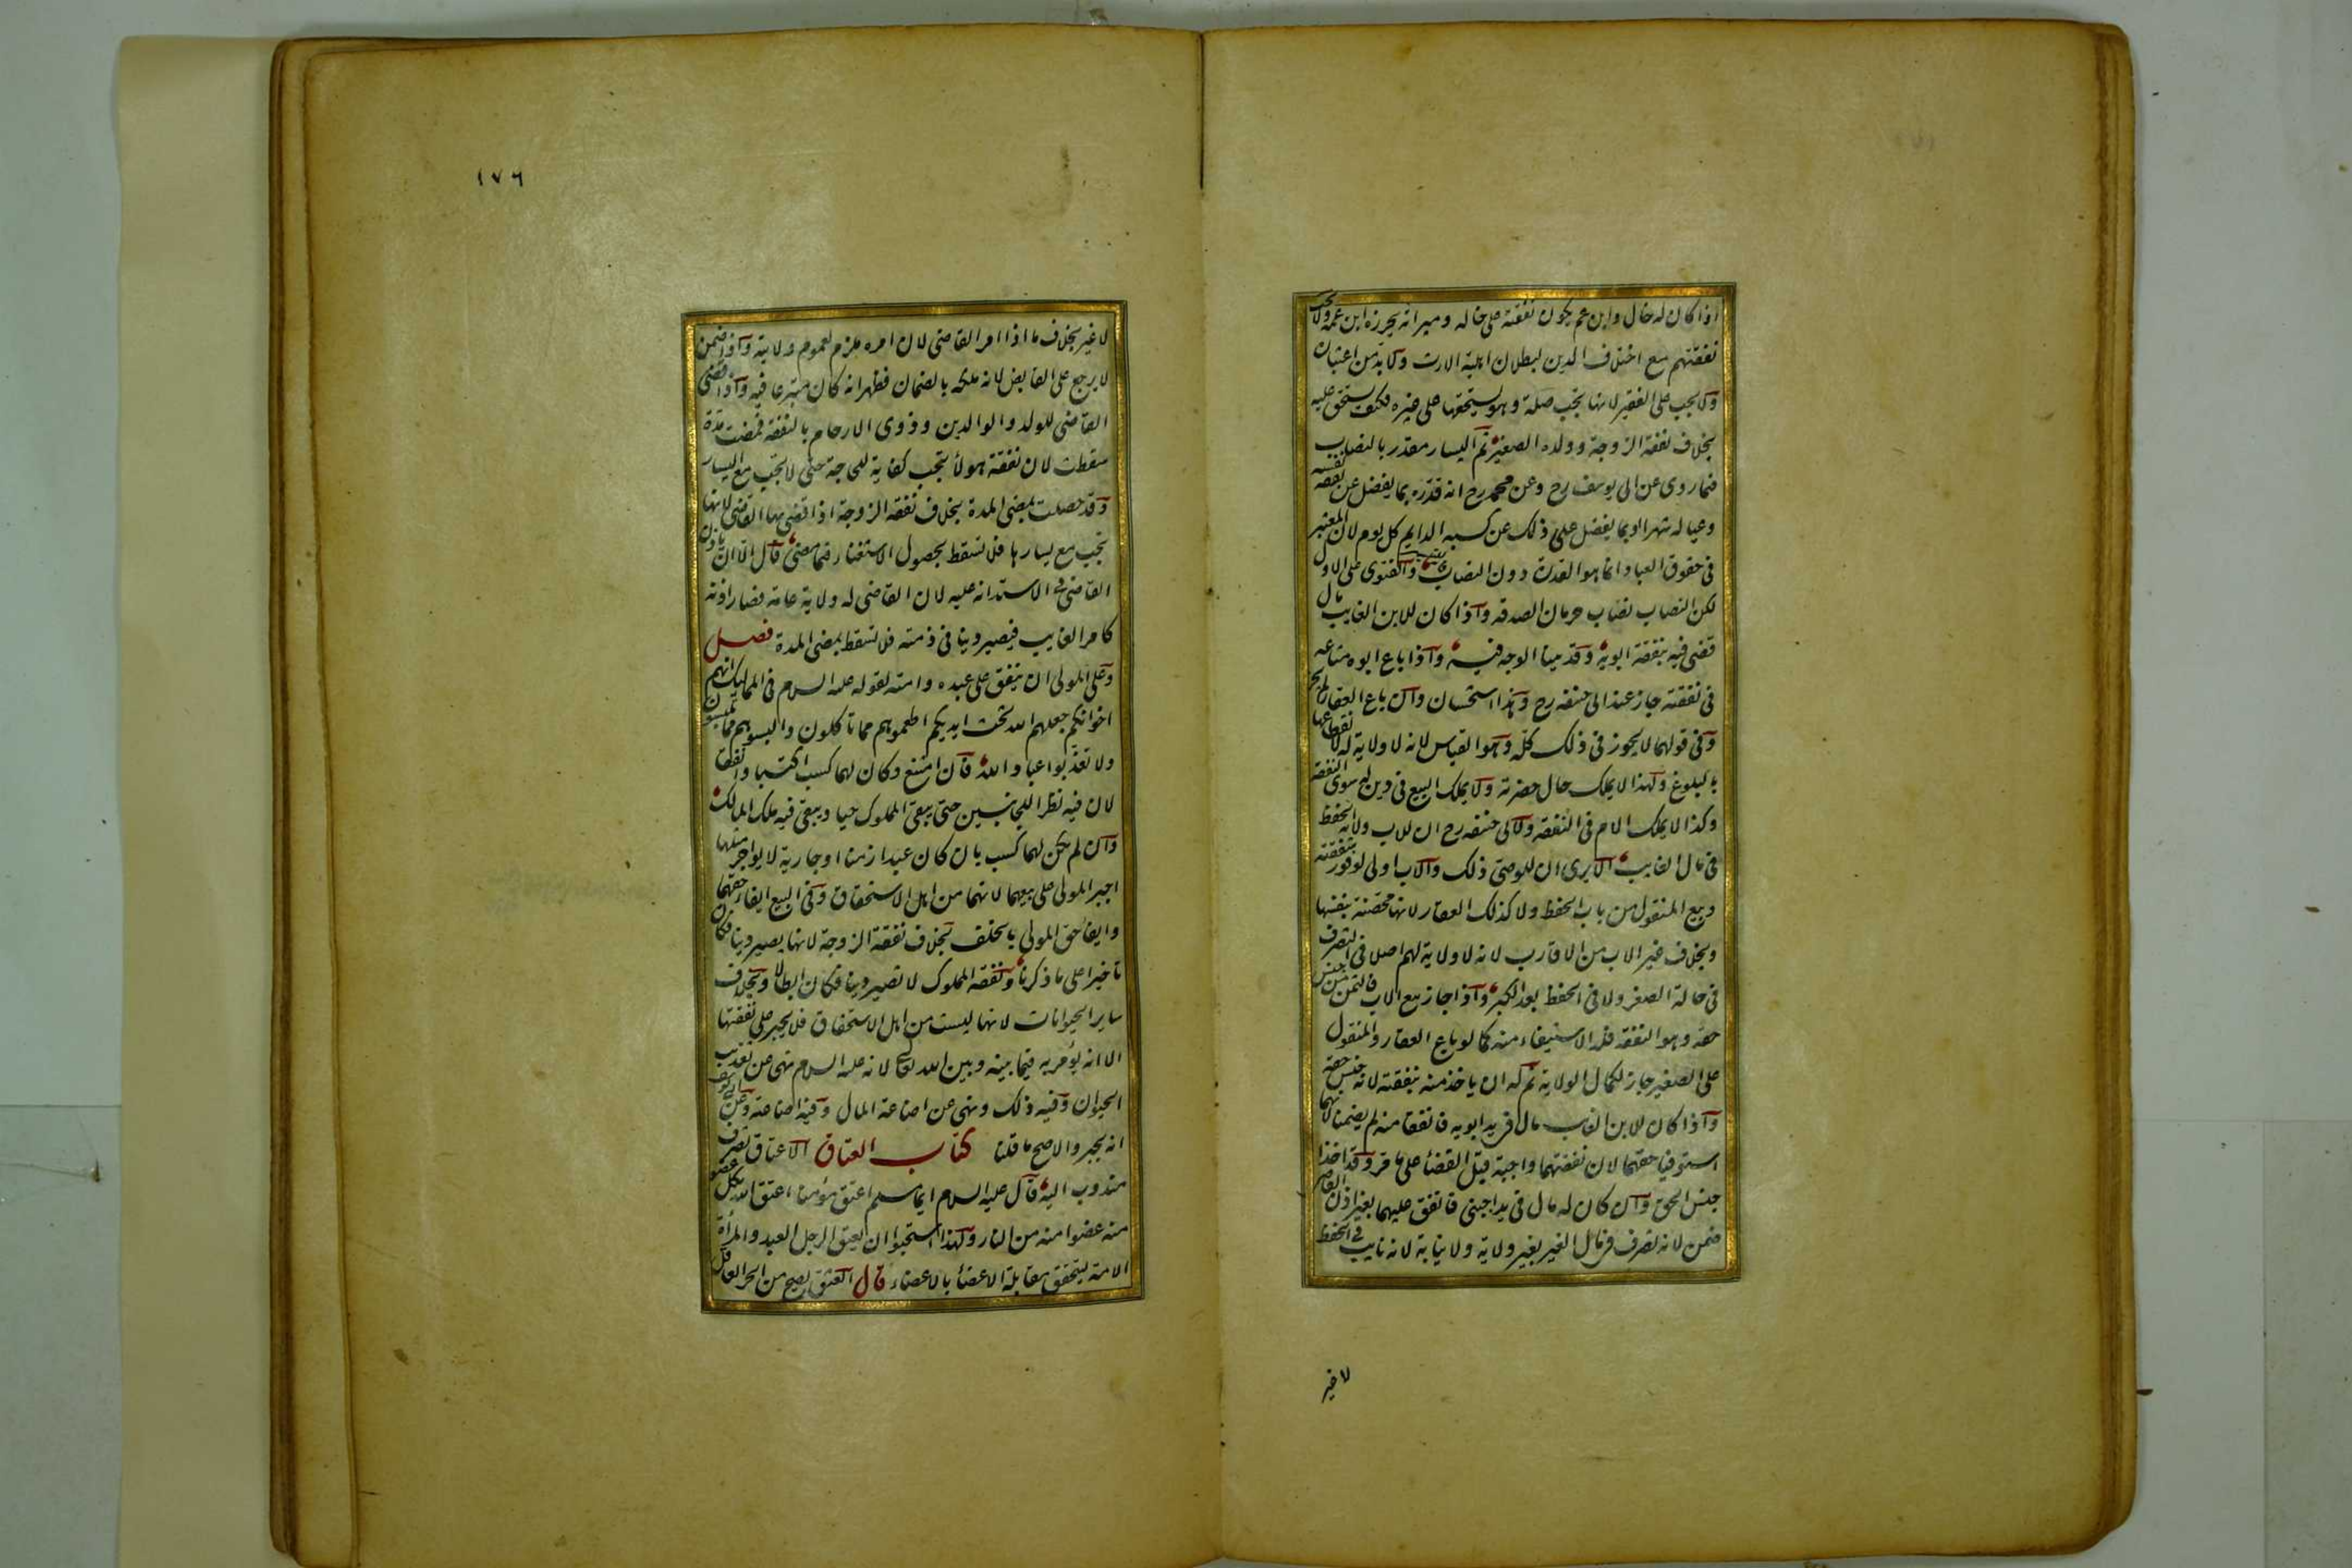 اذا كان له خال وابن عم يكون نفقته على خاله وميراثه يحرزه ابن عمه ولا تجب
نفقتهم مع اختلاف الدين لبطلان اهلية الارث ولا بد من اعتباره
ولا يجب على الفقير لانها تجب صلة وهو يستحقها على غيره فكيف يستحق عليه
بخلاف نفقة الزوجة وولده الصغير ثم اليسار مقدر بالنصاب
فيما روى عن ابى يوسف رح وعن محمد رح انه قدره بما يفضل عن نفقة نفسه
وعياله شهرا وبما يفضل على ذلك عن كسبه الدايم كل يوم لان المعتبر
فى حقوق العباد انما هو القدرة دون النصاب والفتوى على الاول
لكن النصاب نصاب حرمان الصدقه واذا كان للابن الغايب مال
قضى فيه بنفقة ابويه وقد بينا الوجه فيه واذا باع ابوه متاعه
فى نفقته جاز عند ابى حنيفه رح وهذا استحسان وان باع العقار لم يجز
وفى قولهما لا يجوز فى ذلك كله وهو القياس لانه لا ولاية له لانقطاعها
بالبلوغ ولهذا لا يملك حال حضرته ولا يملك البيع فى دين له سوى النفقة
وكذا لا يملك الام فى النفقه ولابى حنيفه رح ان للاب ولاية الحفظ
فى مال الغايب الا يرى ان للوصى ذلك والاب اولى لوفور شفقته
وبيع المنقول من باب الحفظ ولا كذلك العقار لانها محصنة بنفسها
وبخلاف غير الاب من الاقارب لانه لا ولاية لهم اصلا فى التصرف
فى حالة الصغر ولا فى الحفظ بعد الكبر واذا جاز بيع الاب فالثمن من جنس
حقه وهو النفقه فله الاستيفاء منه كما لو باع العقار والمنقول
على الصغير جاز لكمال الولاية ثم له ان ياخذ منه بنفقته لانه جنس حقه
واذا كان للابن الغايب مال فى يد ابويه فانفقا منه لم يضمنا لانهما
استوفيا حقهما لان نفقتهما واجبة قبل القضأ على ما مر وقد اخذا
جنس الحق وان كان له مال فى يد اجنبى فانفق عليهما بغير اذن القاضى
ضمن لانه تصرف فى مال الغير بغير ولاية ولا نيابة لانه نايب فى الحفظ
لا غير
١٧٦
لا غير بخلاف ما اذا امر القاضى لان امره ملزم لعموم ولايته واذا ضمن
لا يرجع على القابض لانه ملكه بالضمان فظهر انه كان متبرعا فيه واذا قضى
القاضى للولد والوالدين وذوى الارحام بالنفقه فمضت مدة
سقطت لان نفقة هولأ تجب كفاية للحاجة حتى لا تجب مع اليسار
وقد حصلت بمضى المدة بخلاف نفقة الزوجة اذا قضى بها القاضى لانها
تجب مع يسارها فلا تسقط بحصول الاستغناء فيما مضى قال الا ان ياذن
القاضى فى الاستدانه عليه لان القاضى له ولاية عامه فصار اذنه
كامر الغايب فيصير دينا فى ذمته فلا تسقط بمضى المدة فصل
وعلى المولى ان ينفق على عبده وامته لقوله عليه السلام فى المماليك انهم
اخوانكم جعلهم الله تحت ايديكم اطعموهم مما تاكلون والبسوهم مما تلبسون
ولا تعذبوا عباد الله فان امتنع وكان لهما كسب اكتسبا وانفقا
لان فيه نظرا للجانبين حتى يبقى المملوك حيا ويبقى فيه ملك المالك
وان لم يكن لهما كسب بان كان عبدا زمنا او جارية لا يواجر مثلها
اجبر المولى على بيعهما لانهما من اهل الاستحقاق وفى البيع ايفاء حقهما
وايفا حق المولى بالخلف بخلاف نفقة الزوجة لانها يصير دينا فكان
تاخيرا على ما ذكرنا ونفقة المملوك لا تصير دينا فكان ابطالا وبخلاف
ساير الحيوانات لانها ليست من اهل الاستحقاق فلا يجبر على نفقتها
الا انه يؤمر به فيما بينه وبين الله تعالى لانه عليه السلام نهى عن تعذيب
الحيوان وفيه ذلك ونهى عن اضاعة المال وفيه اضاعته وعن ابى يوسف
انه يجبر والاصح ما قلنا كتاب العتاق الاعتاق تصرف
مندوب اليه قال عليه السلام ايما مسلم اعتق مؤمنا اعتق الله بكل عضو
منه عضوا منه من النار ولهذا استحبوا ان يعتق الرجل العبد والمرأة
الامة ليتحقق مقابلة الاعضأ بالاعضاء قال العتق يصح من الحر العاقل